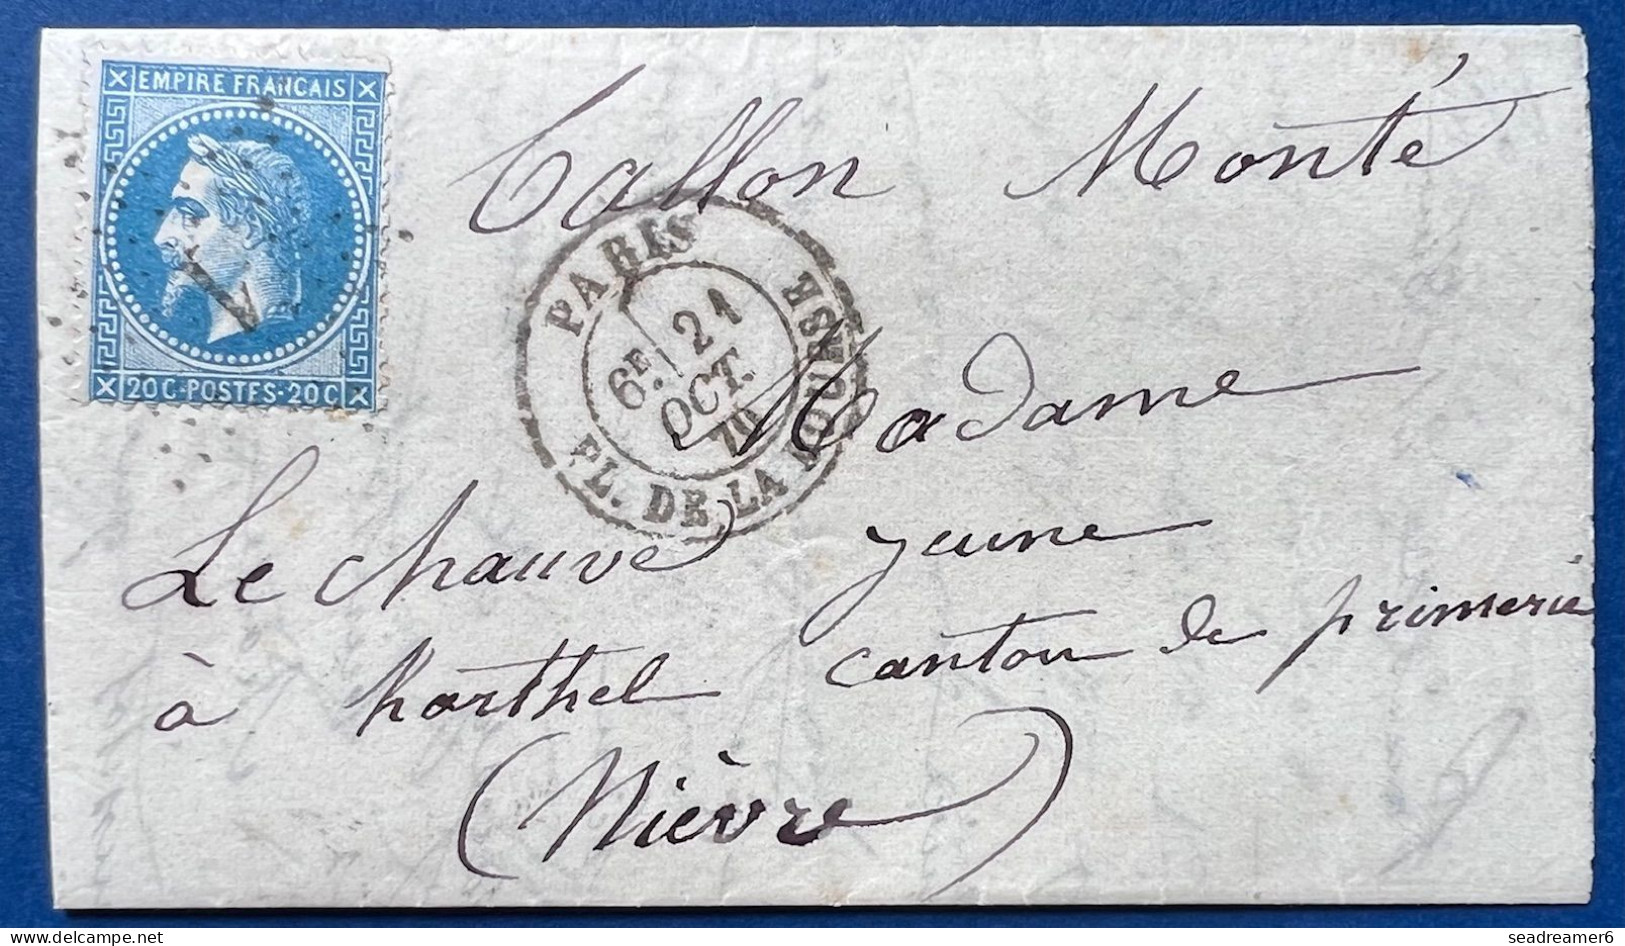 EMPIRE FRANCAIS
20C·POSTES·20C
1
Ballon Monté
PARIS
6E 21
OCT.
70
PL. DE LA BOURSE
Madame
Le Chauve jeune
à Korthel canton de primerie
(Nièvre)
delcampe.net
seadreamer6